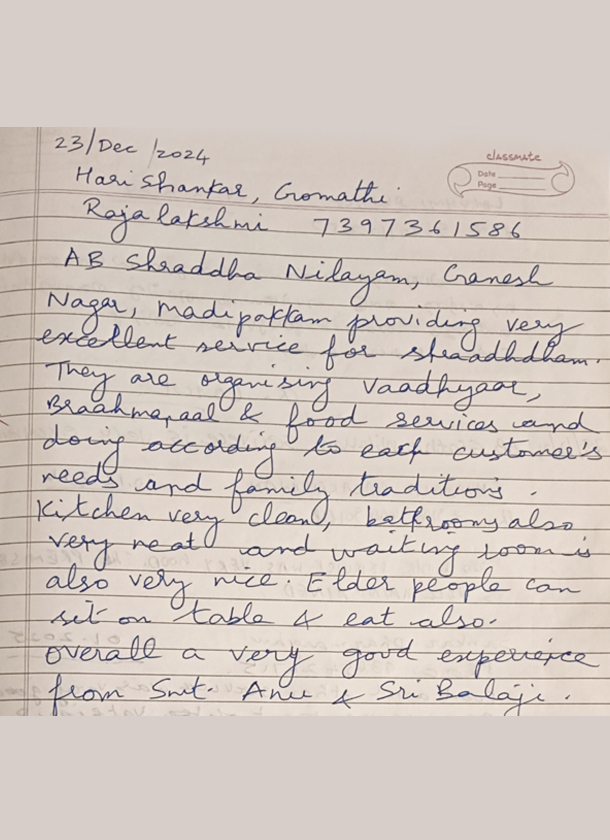 23/Dec/2024
classmate
Date
Page
Hari Shankar, Gomathi
Rajalakshmi 7397361586
AB Shraddha Nilayam, Ganesh
Nagar, Madipakkam providing very
excellent service for shraadhdham.
They are organising Vaadhyaar,
Braahmanaal & food services and
doing according to each customer's
needs and family traditions.
Kitchen very clean, bathrooms also
very neat and waiting room is
also very nice. Elder people can
sit on table & eat also.
overall a very good experience
from Smt. Anu & Sri Balaji.